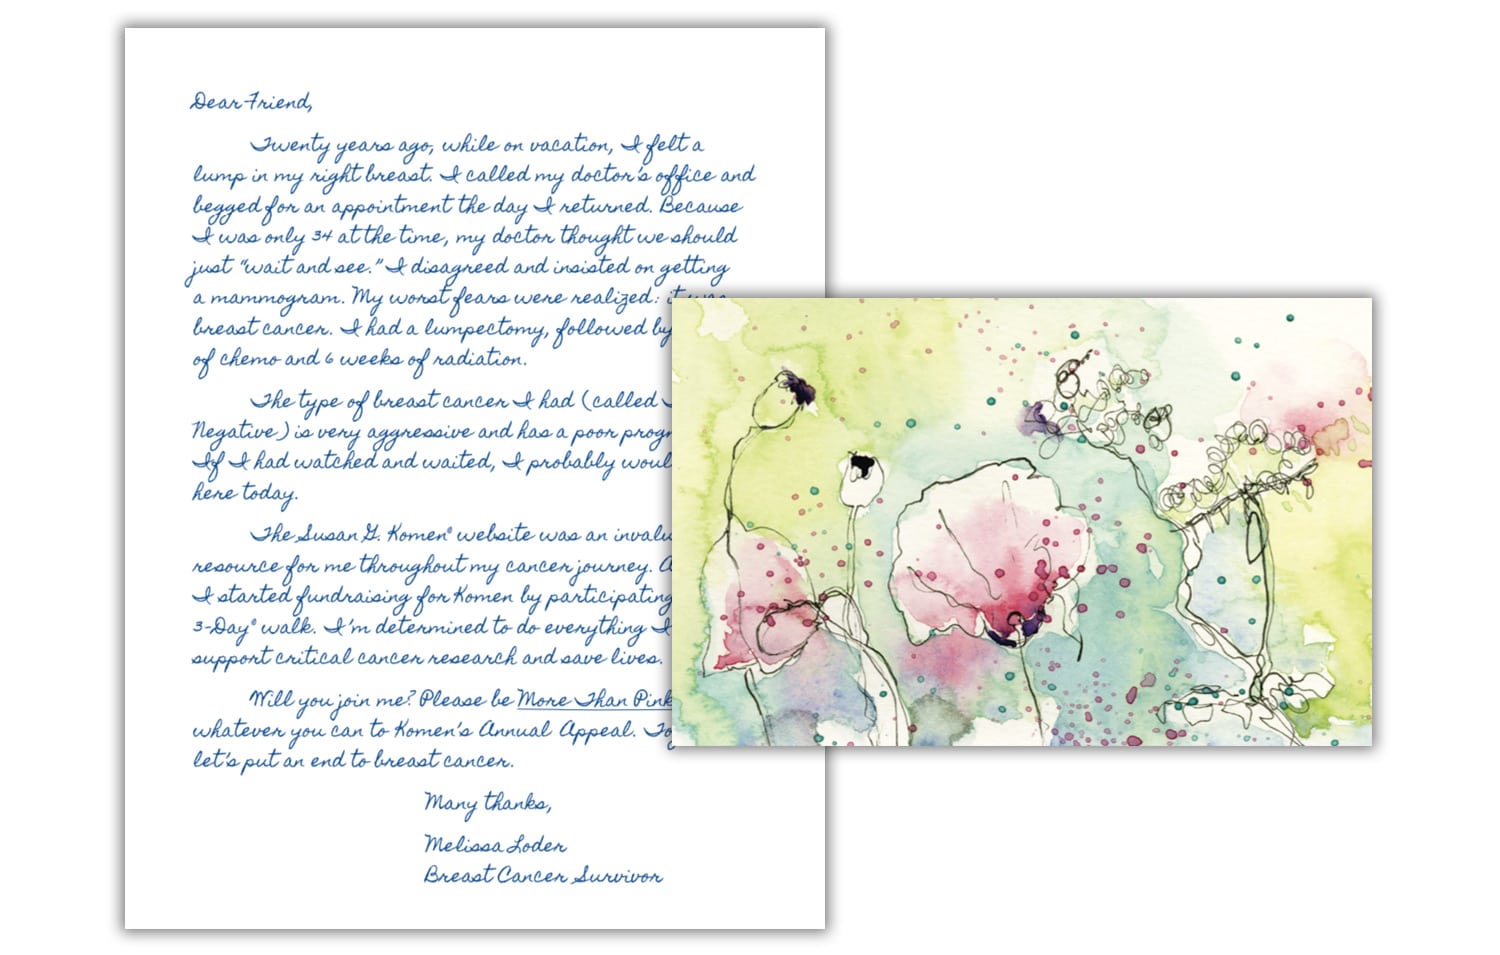 Dear Friend,
Twenty years ago, while on vacation, I felt a
lump in my right breast. I called my doctor's office and
begged for an appointment the day I returned. Because
I was only 34 at the time, my doctor thought we should
just "wait and see." I disagreed and insisted on getting
a mammogram. My worst fears were realized: it was
breast cancer. I had a lumpectomy, followed by
of chemo and 6 weeks of radiation.
The type of breast cancer I had (called
Negative) is very aggressive and has a poor
If I had watched and waited, I probably
here today.
The Susan G. Komen® website was an
resource for me throughout my cancer journey.
I started fundraising for Komen by participating
3-Day® walk. I'm determined to do everything I
support critical cancer research and save lives.
Will you join me? Please be More Than Pink
whatever you can to Komen's Annual Appeal.
let's put an end to breast cancer.
Many thanks,
Melissa Loder
Breast Cancer Survivor